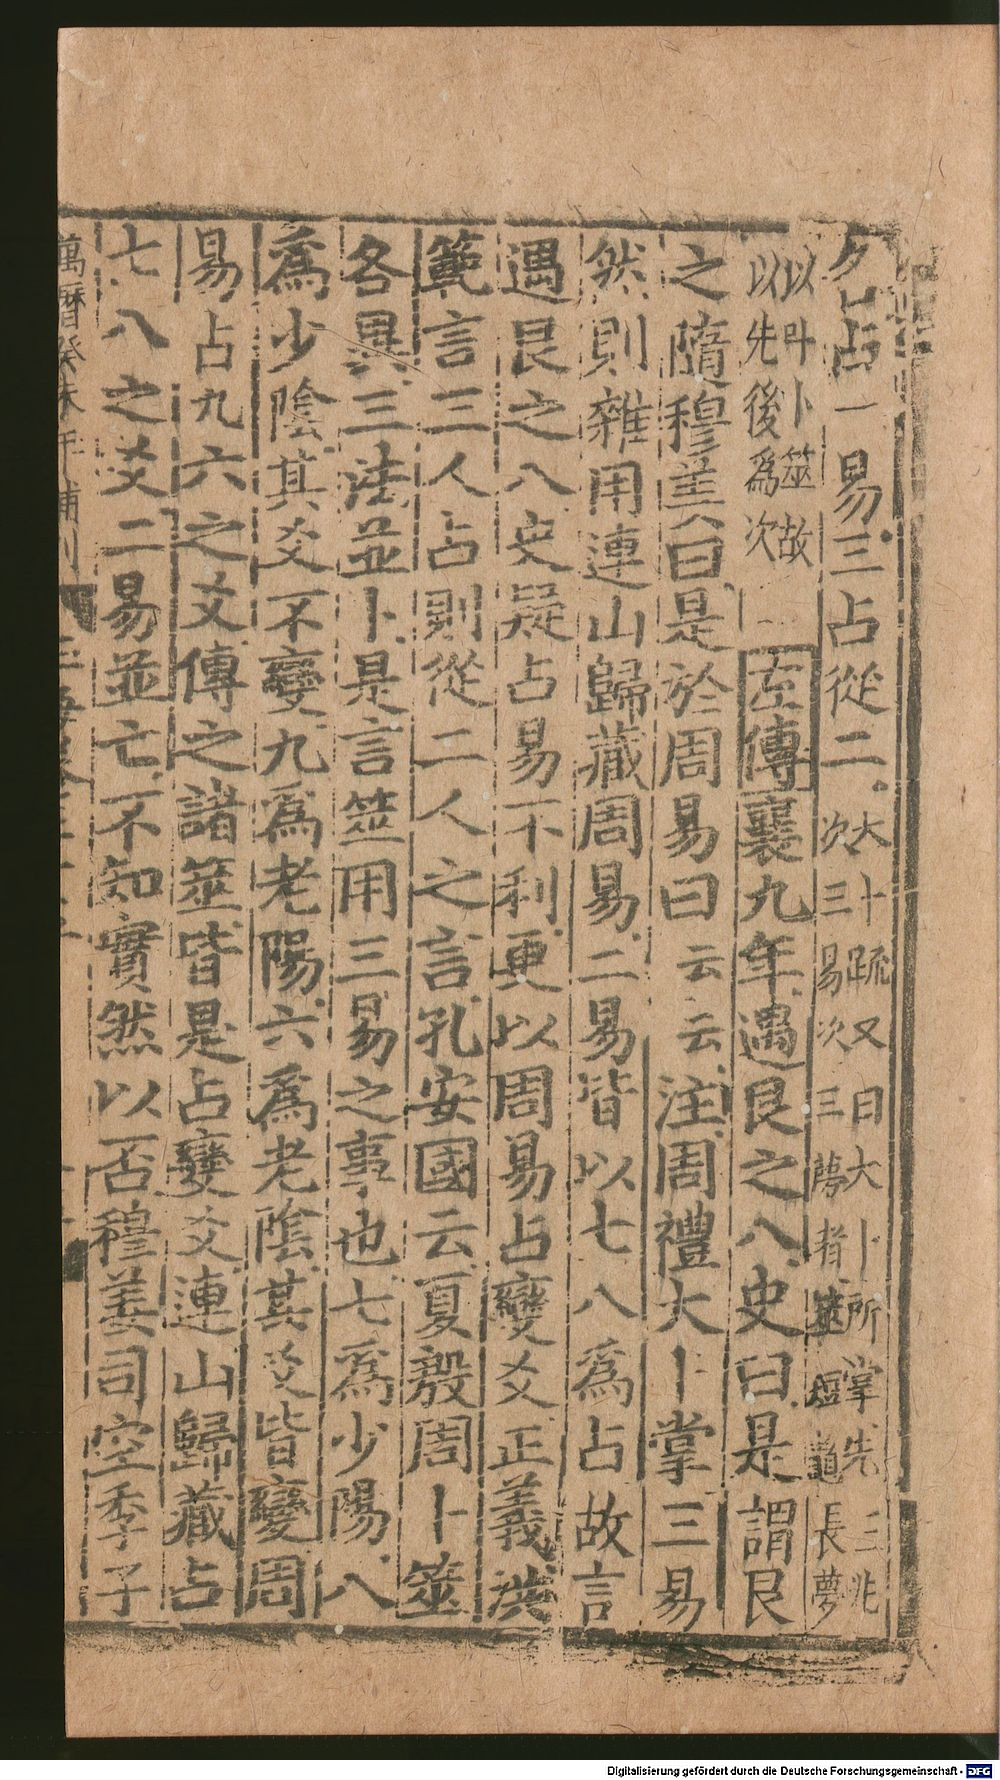 夕占一易三占從二。大卜疏又曰大卜所掌先三兆
次三易次三夢者筮短龜長夢
以叶卜筮故
以先後爲次
左傳襄九年遇艮之八史曰是謂艮
之隨穆姜曰是於周易曰云云注周禮大卜掌三易
然則雜用連山歸藏周易二易皆以七八爲占故言
遇艮之八史疑占易不利更以周易占變爻正義洪
範言三人占則從二人之言孔安國云夏殷周卜筮
各異三法並卜是言筮用三易之事也七爲少陽八
爲少陰其爻不變九爲老陽六爲老陰其爻皆變周
易占九六之爻傳之諸筮皆是占變爻連山歸藏占
七八之爻二易並亡不知實然以否穆姜司空季子
萬曆癸未年補刊
Digitalisierung gefördert durch die Deutsche Forschungsgemeinschaft - DFG